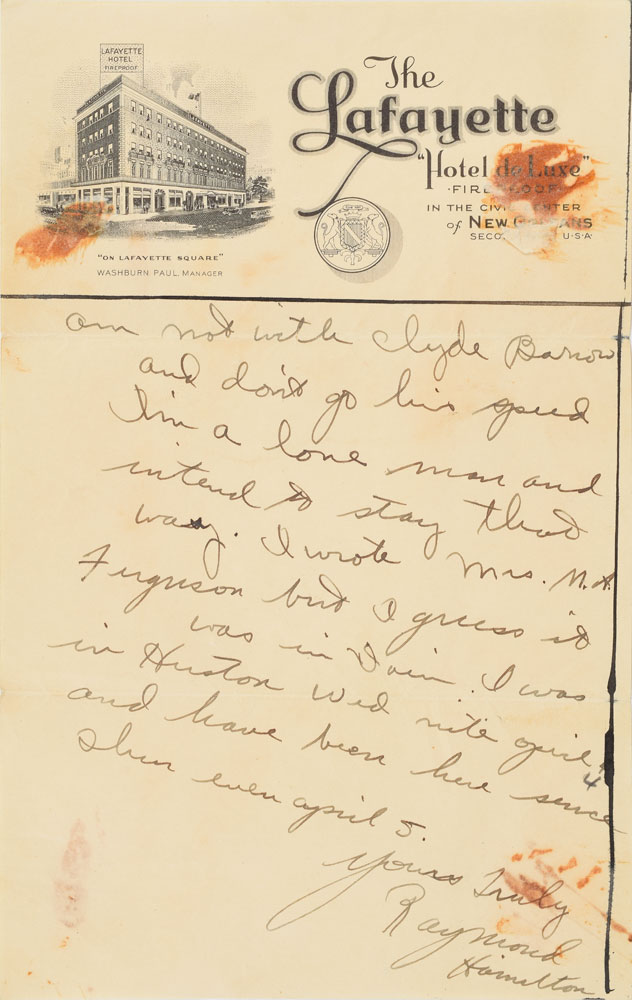 LAFAYETTE
HOTEL
FIREPROOF
The
Lafayette
"Hotel de Luxe"
IN THE CIVIC CENTER
of NEW ORLEANS
U·S·A·
"ON LAFAYETTE SQUARE"
WASHBURN PAUL, MANAGER
am not with Clyde Barrow
and don't go his speed
I'm a lone man and
intend to stay that
way. I wrote Mrs. M.A.
Ferguson but I guess it
was in Vain. I was
in Huston Wed nite april 4
and have been here sence
then even april 5.
Yours Truly
Raymond
Hamilton